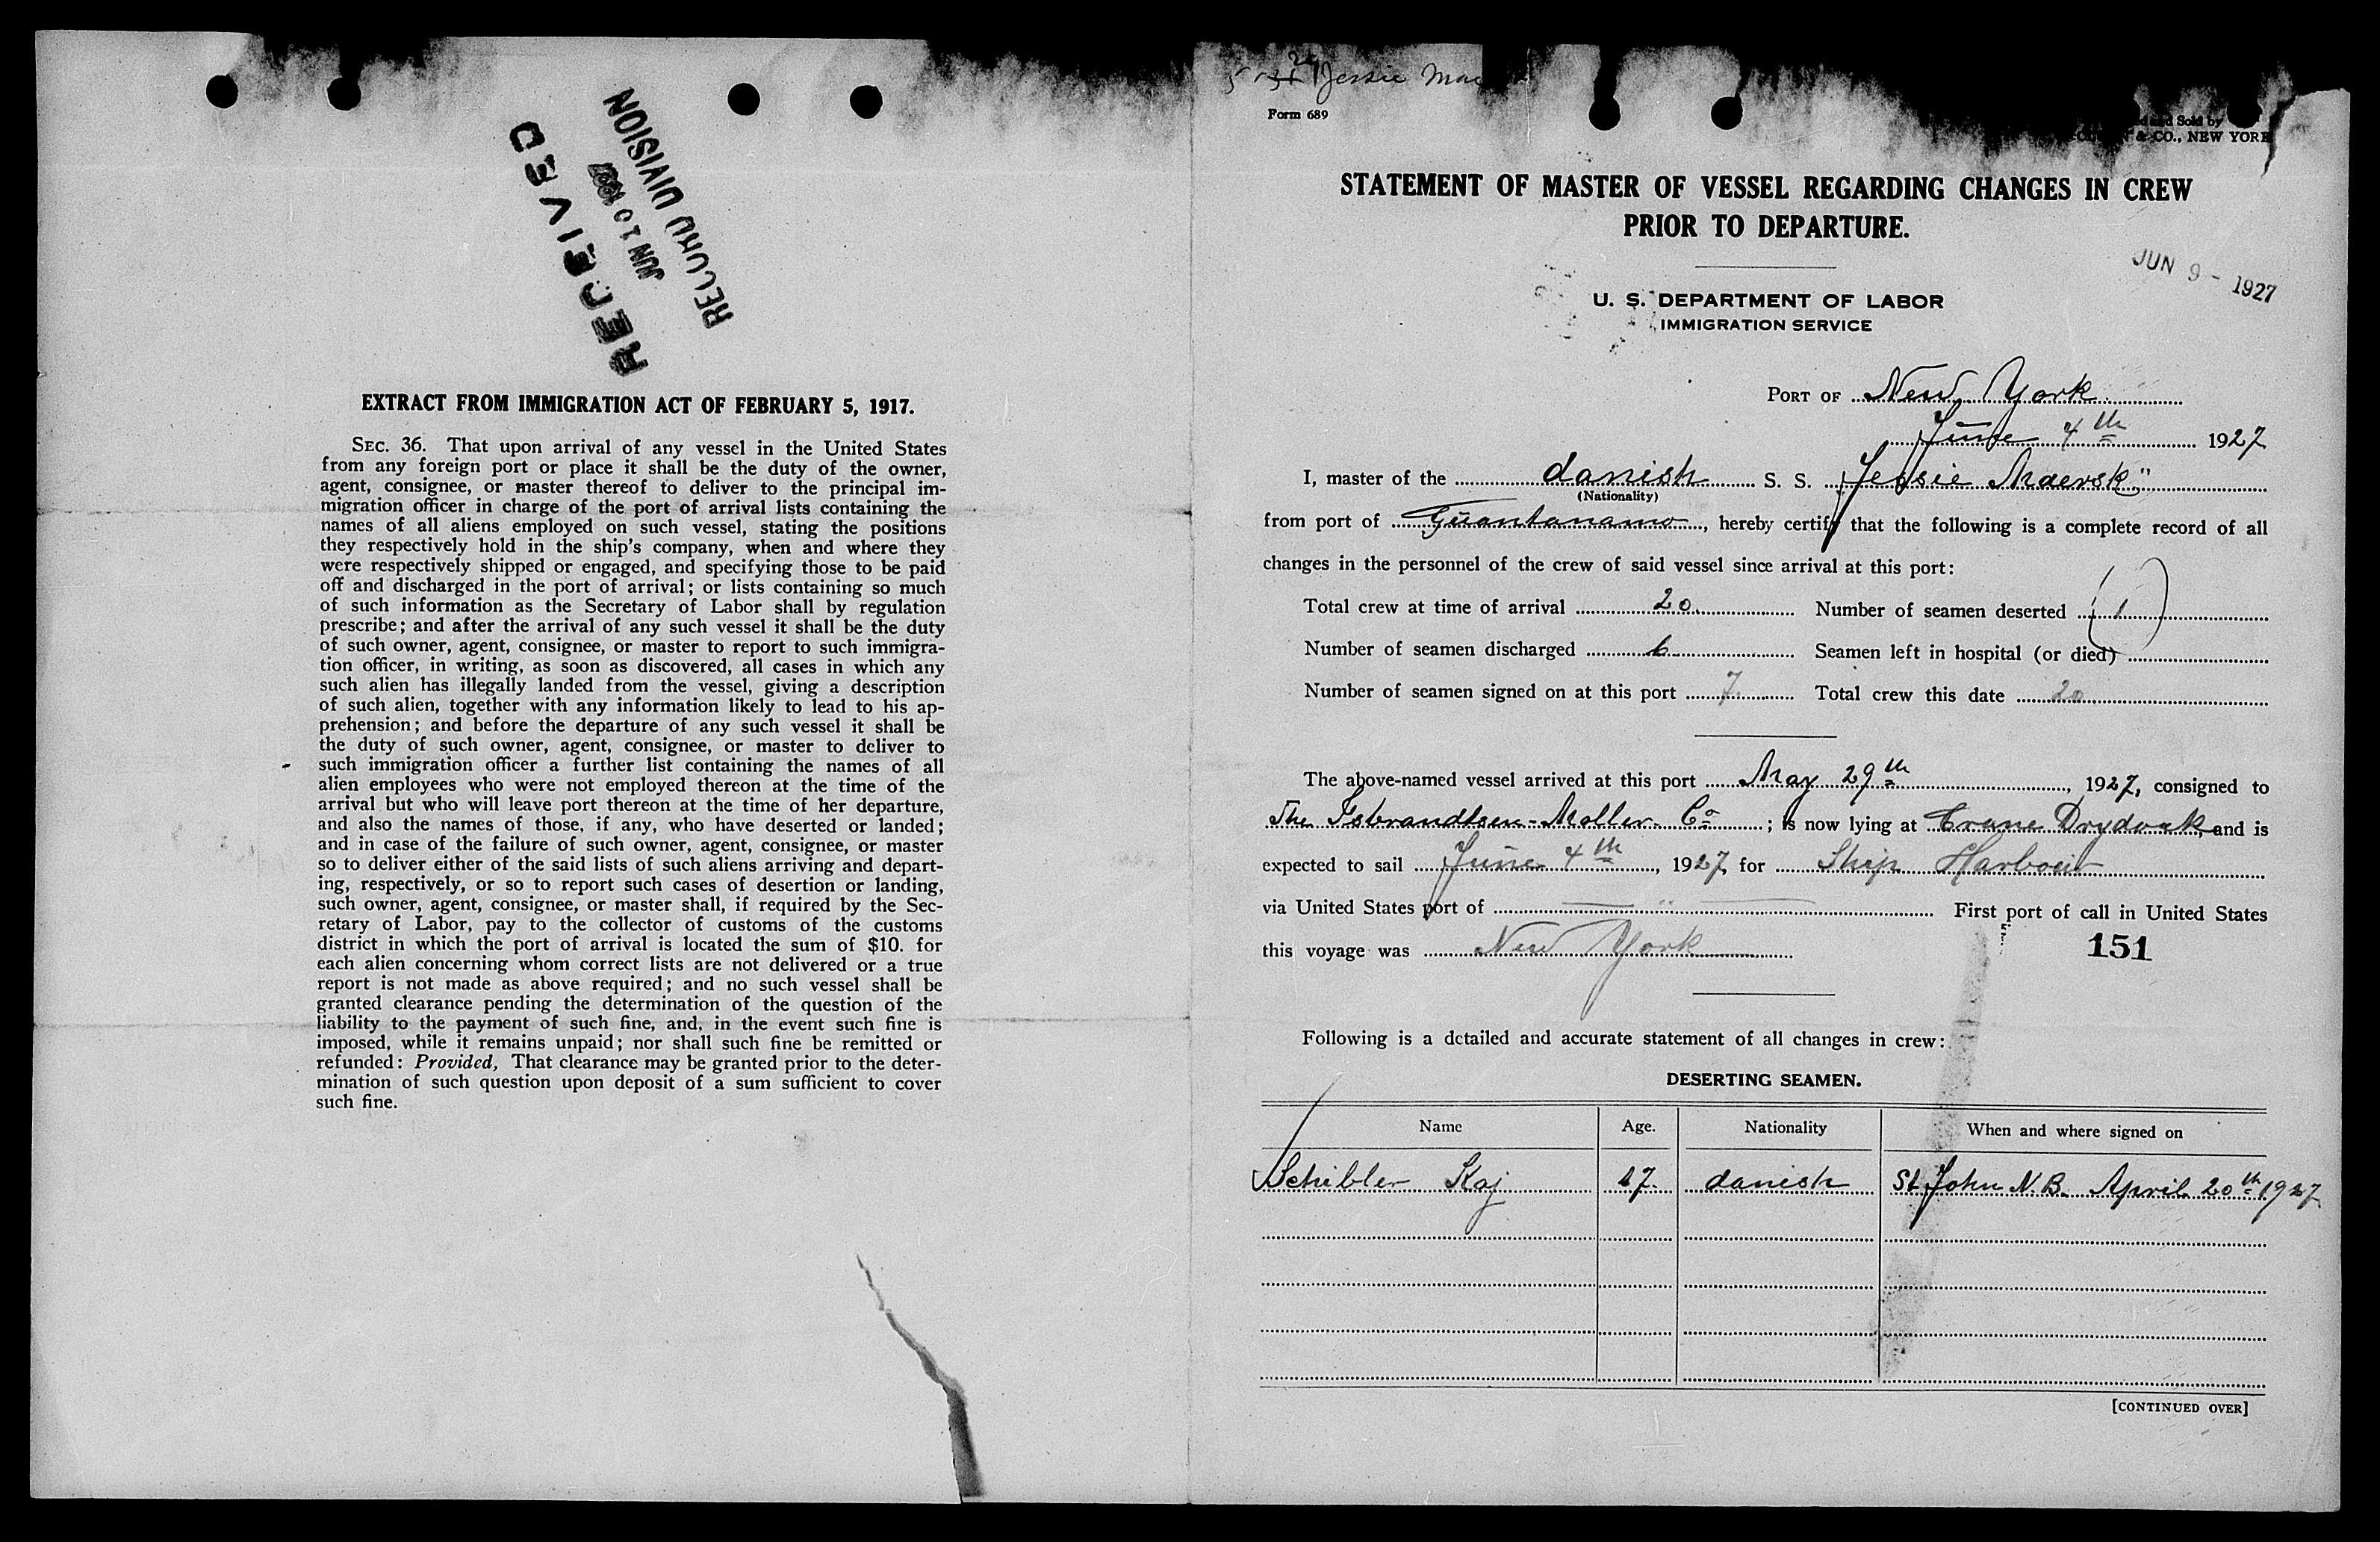 RECEIVED
JUN 10 1927
RECORD DIVISION
EXTRACT FROM IMMIGRATION ACT OF FEBRUARY 5, 1917.
SEC. 36. That upon arrival of any vessel in the United States
from any foreign port or place it shall be the duty of the owner,
agent, consignee, or master thereof to deliver to the principal im-
migration officer in charge of the port of arrival lists containing the
names of all aliens employed on such vessel, stating the positions
they respectively hold in the ship's company, when and where they
were respectively shipped or engaged, and specifying those to be paid
off and discharged in the port of arrival; or lists containing so much
of such information as the Secretary of Labor shall by regulation
prescribe; and after the arrival of any such vessel it shall be the duty
of such owner, agent, consignee, or master to report to such immigra-
tion officer, in writing, as soon as discovered, all cases in which any
such alien has illegally landed from the vessel, giving a description
of such alien, together with any information likely to lead to his ap-
prehension; and before the departure of any such vessel it shall be
the duty of such owner, agent, consignee, or master to deliver to
such immigration officer a further list containing the names of all
alien employees who were not employed thereon at the time of the
arrival but who will leave port thereon at the time of her departure,
and also the names of those, if any, who have deserted or landed;
and in case of the failure of such owner, agent, consignee, or master
so to deliver either of the said lists of such aliens arriving and depart-
ing, respectively, or so to report such cases of desertion or landing,
such owner, agent, consignee, or master shall, if required by the Sec-
retary of Labor, pay to the collector of customs of the customs
district in which the port of arrival is located the sum of $10. for
each alien concerning whom correct lists are not delivered or a true
report is not made as above required; and no such vessel shall be
granted clearance pending the determination of the question of the
liability to the payment of such fine, and, in the event such fine is
imposed, while it remains unpaid; nor shall such fine be remitted or
refunded: Provided, That clearance may be granted prior to the deter-
mination of such question upon deposit of a sum sufficient to cover
such fine.
Jessie
Form 689
Sold by
& CO., NEW YORK
STATEMENT OF MASTER OF VESSEL REGARDING CHANGES IN CREW
PRIOR TO DEPARTURE.
JUN 9 - 1927
U. S. DEPARTMENT OF LABOR
IMMIGRATION SERVICE
PORT OF New York
June 4th 1927
I, master of the danish S. S. Jessie Maersk"
(Nationality)
from port of Guantanamo, hereby certify that the following is a complete record of all
changes in the personnel of the crew of said vessel since arrival at this port:
Total crew at time of arrival 20. Number of seamen deserted (1)
Number of seamen discharged 6. Seamen left in hospital (or died)
Number of seamen signed on at this port 7. Total crew this date 20
The above-named vessel arrived at this port May 29th, 1927, consigned to
The Isbrandtsen-Moller Co; is now lying at Crane Drydock and is
expected to sail June 4th, 1927 for Ship Harbour
via United States port of — " — First port of call in United States
this voyage was New York 151
Following is a detailed and accurate statement of all changes in crew:
DESERTING SEAMEN.
Name Age. Nationality When and where signed on
Schibler Kaj 17. danish St John N.B. April 20th 1927
[CONTINUED OVER]